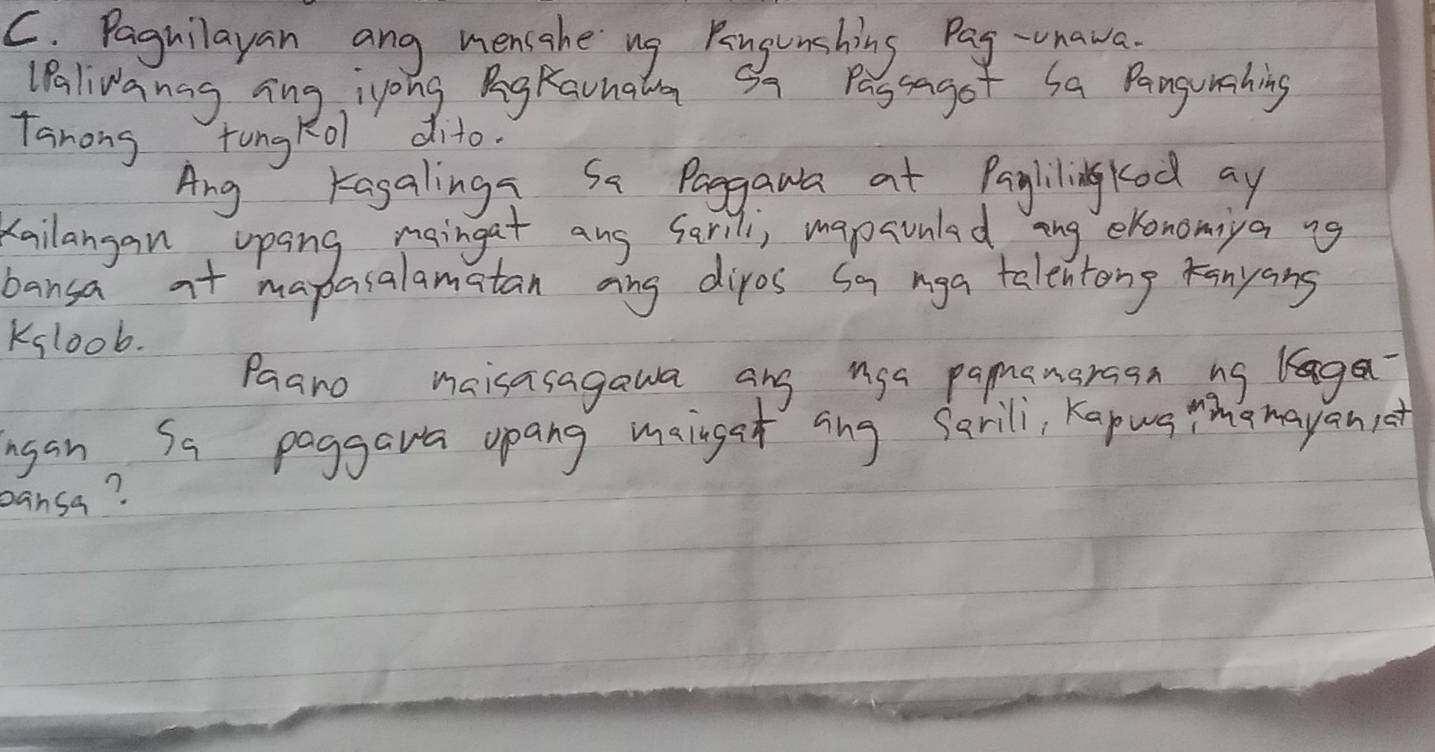 C. Pagnilayan ang mensahe ng Pangunahing Pag-unawa.
IPaliwanag ang iyong Pagkaunawa sa Pagsagot sa Pangunahing
Tanong tungkol dito.
Ang kagalinga sa Paggawa at Paglilingkod ay
kailangan upang maingat ang sarili, mapaunlad ang ekonomiya ng
bansa at mapasalamatan ang diyos sa mga talentong kanyang
kaloob.
Paano maisasagawa ang mga papmamaraan ng kaga-
ngan sa paggawa upang maingat ang sarili, kapwa, mamamayan, at
bansa?